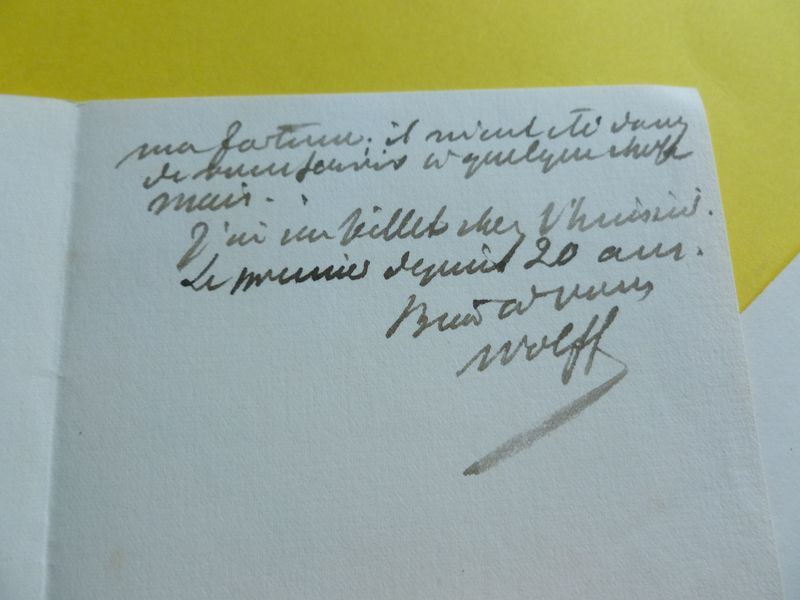 ma fortune. il m'eut été doux
de vous servir à quelque chose
mais.
J'ai un billet chez l'huissier.
Le premier depuis 20 ans.
Bien à vous
Wolff